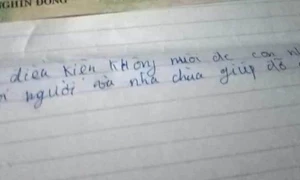 NGHÌN ĐỒNG
điều kiện không nuôi đc con
người và nhà chùa giúp đỡ